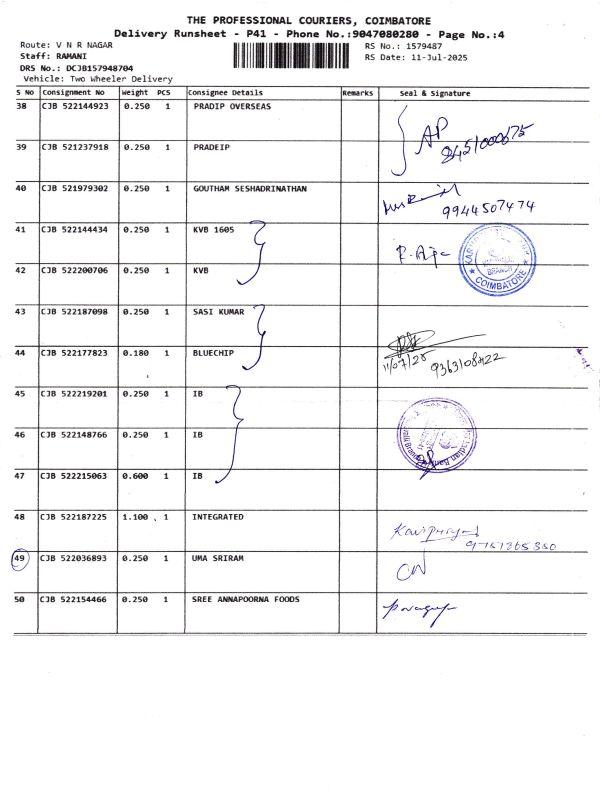 THE PROFESSIONAL COURIERS, COIMBATORE
Delivery Runsheet - P41 - Phone No.:9047080280 - Page No.:4
Route: V N R NAGAR RS No.: 1579487
Staff: RAMANI RS Date: 11-Jul-2025
DRS No.: DCJB157948704
Vehicle: Two Wheeler Delivery
S No Consignment No Weight PCS Consignee Details Remarks Seal & Signature
38 CJB 522144923 0.250 1 PRADIP OVERSEAS
AP
39 CJB 521237918 0.250 1 PRADEIP
40 CJB 521979302 0.250 1 GOUTHAM SESHADRINATHAN
9944507474
41 CJB 522144434 0.250 1 KVB 1605
BRANCH
COIMBATORE
42 CJB 522200706 0.250 1 KVB
43 CJB 522187098 0.250 1 SASI KUMAR
44 CJB 522177823 0.180 1 BLUECHIP
11/07/25
45 CJB 522219201 0.250 1 IB
46 CJB 522148766 0.250 1 IB
47 CJB 522215063 0.600 1 IB
48 CJB 522187225 1.100 1 INTEGRATED
49 CJB 522036893 0.250 1 UMA SRIRAM
50 CJB 522154466 0.250 1 SREE ANNAPOORNA FOODS